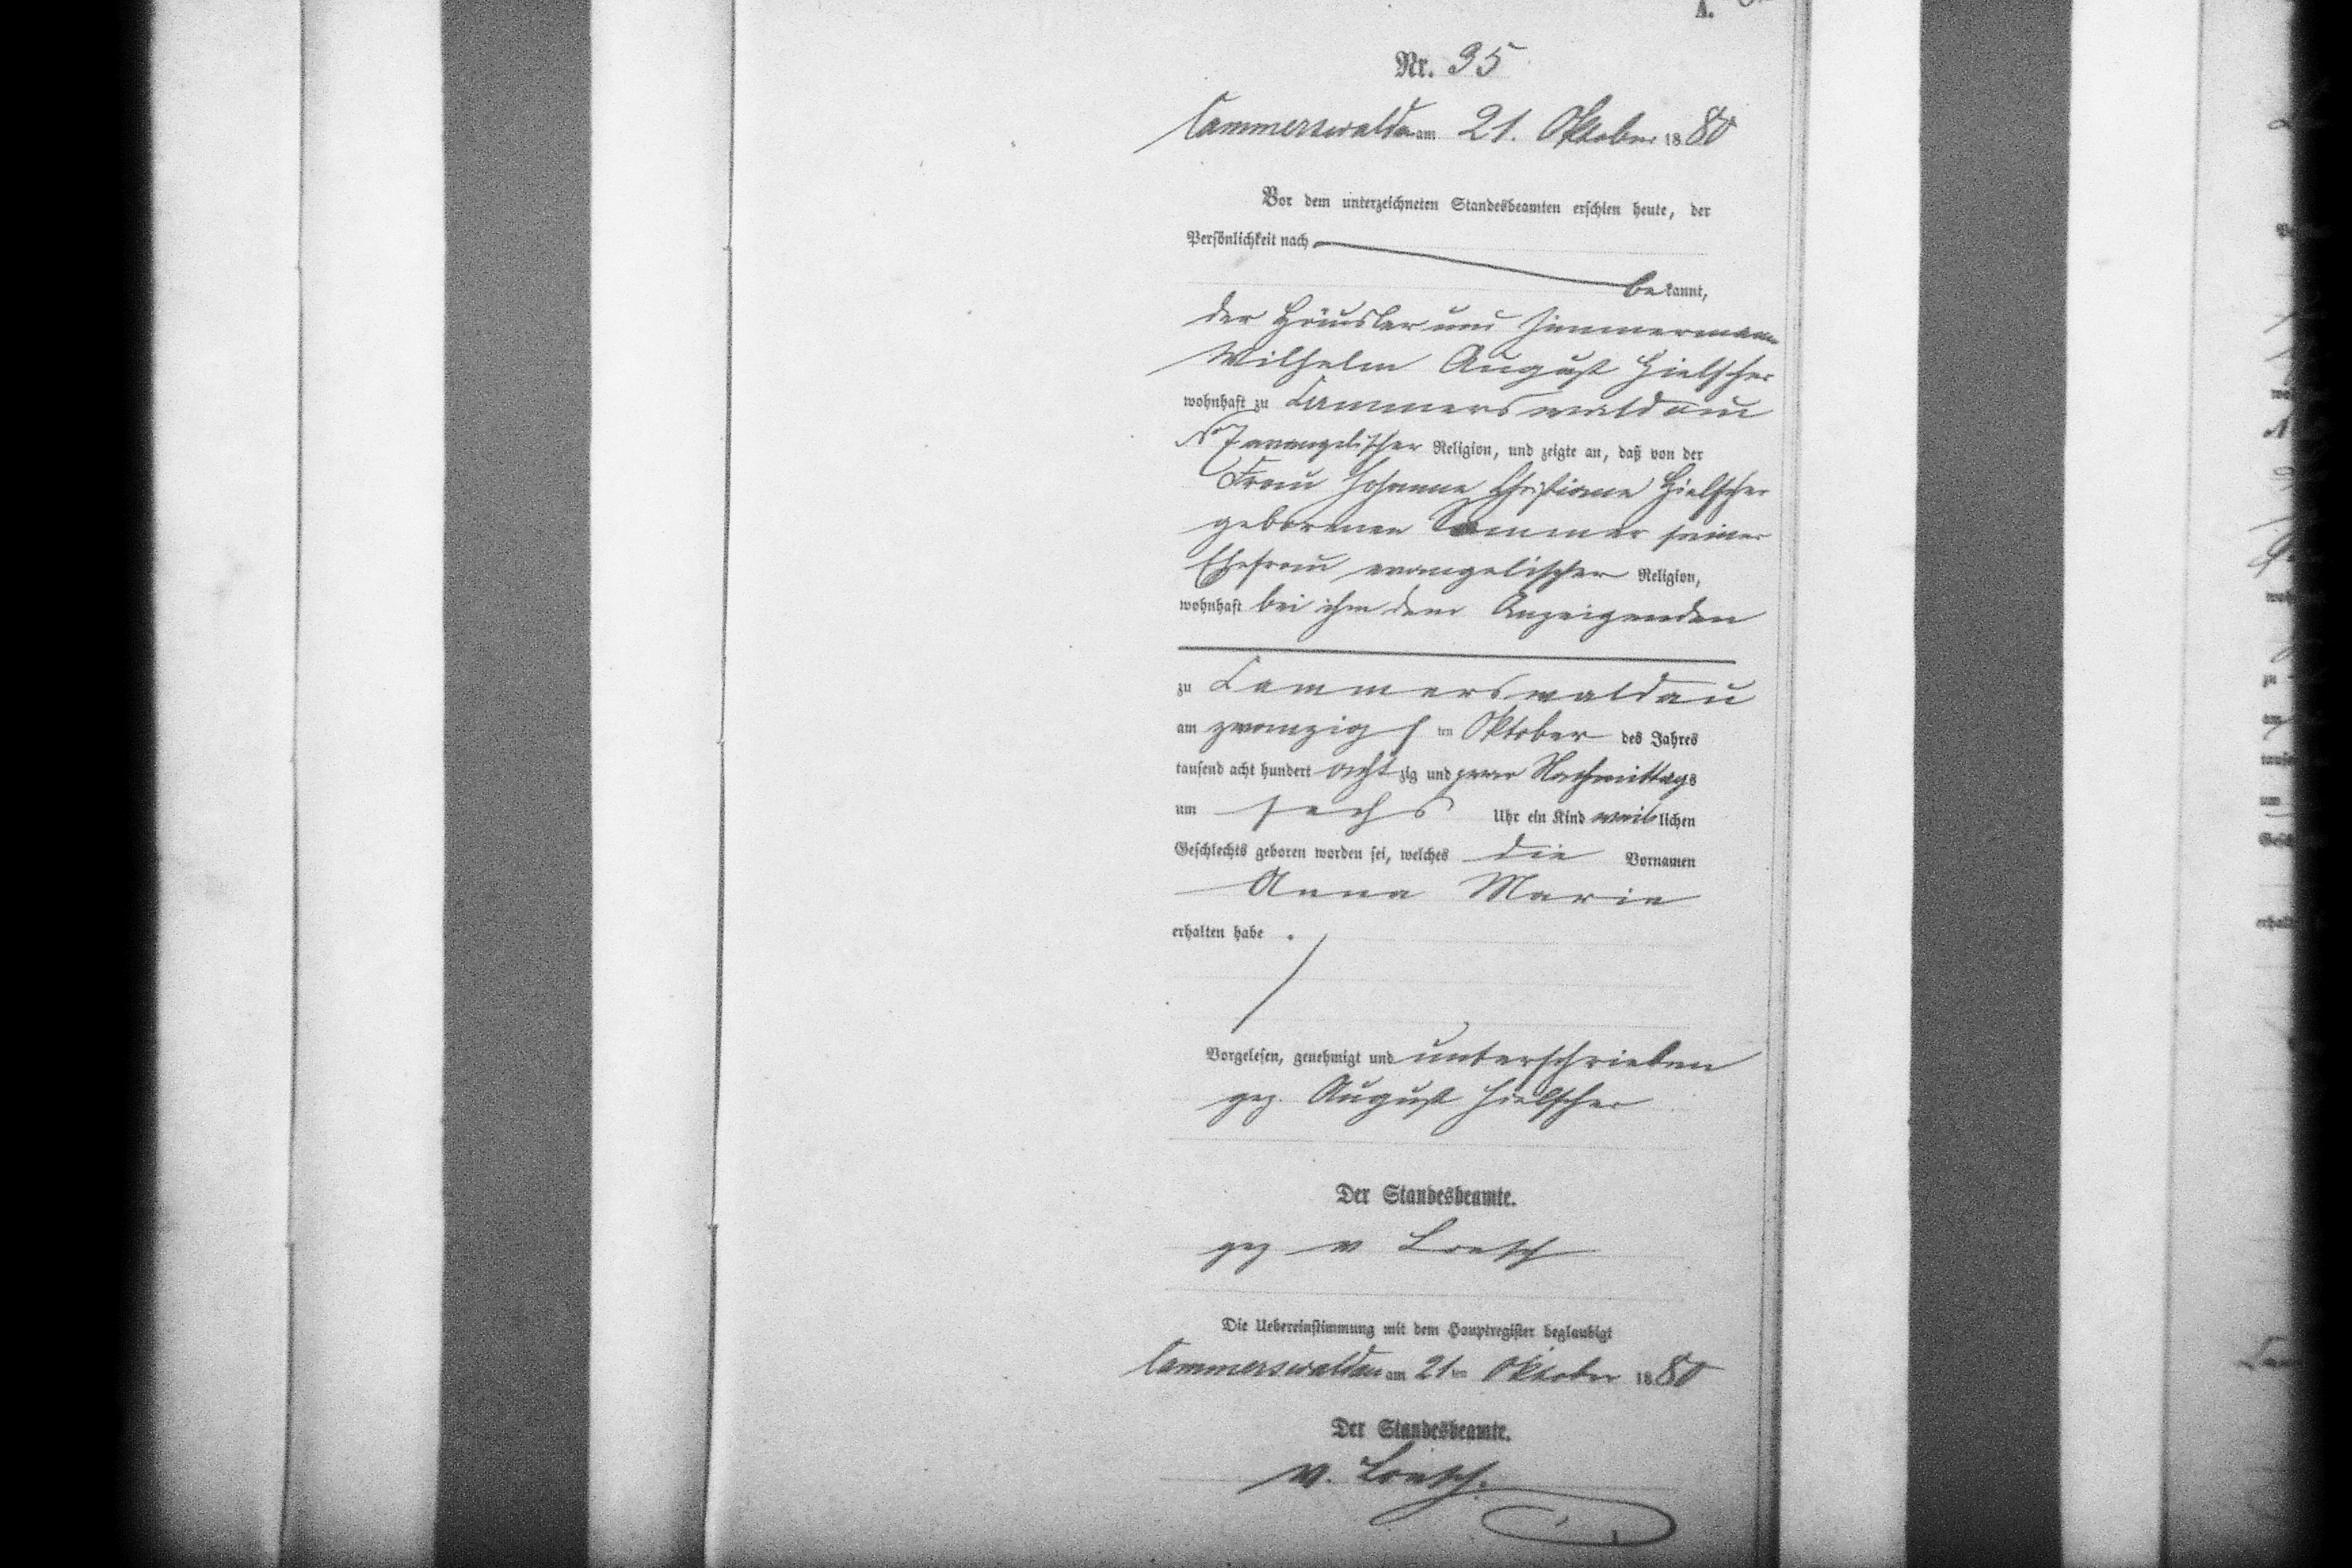 A.
Nr. 35
Cammerswaldau am 21. Oktober 1880
Vor dem unterzeichneten Standesbeamten erschien heute, der
Persönlichkeit nach
bekannt,
der Häusler und Zimmermann
Wilhelm August Hielscher
wohnhaft zu Cammerswaldau
No 7 evangelischer Religion, und zeigte an, daß von der
Frau Johanne Christiane Hielscher
geborenen Sommer seiner
Ehefrau evangelischer Religion,
wohnhaft bei ihm dem Anzeigenden
zu Cammerswaldau
am zwanzigsten Oktober des Jahres
tausend acht hundert achtzig und zwar Nachmittags
um sechs Uhr ein Kind weiblichen
Geschlechts geboren worden sei, welches die Vornamen
Anna Marie
erhalten habe.
Vorgelesen, genehmigt und unterschrieben
gez. August Hielscher
Der Standesbeamte.
gez v Loesch
Die Uebereinstimmung mit dem Hauptregister beglaubigt
Cammerswaldau am 21ten Oktober 1880
Der Standesbeamte.
v. Loesch.